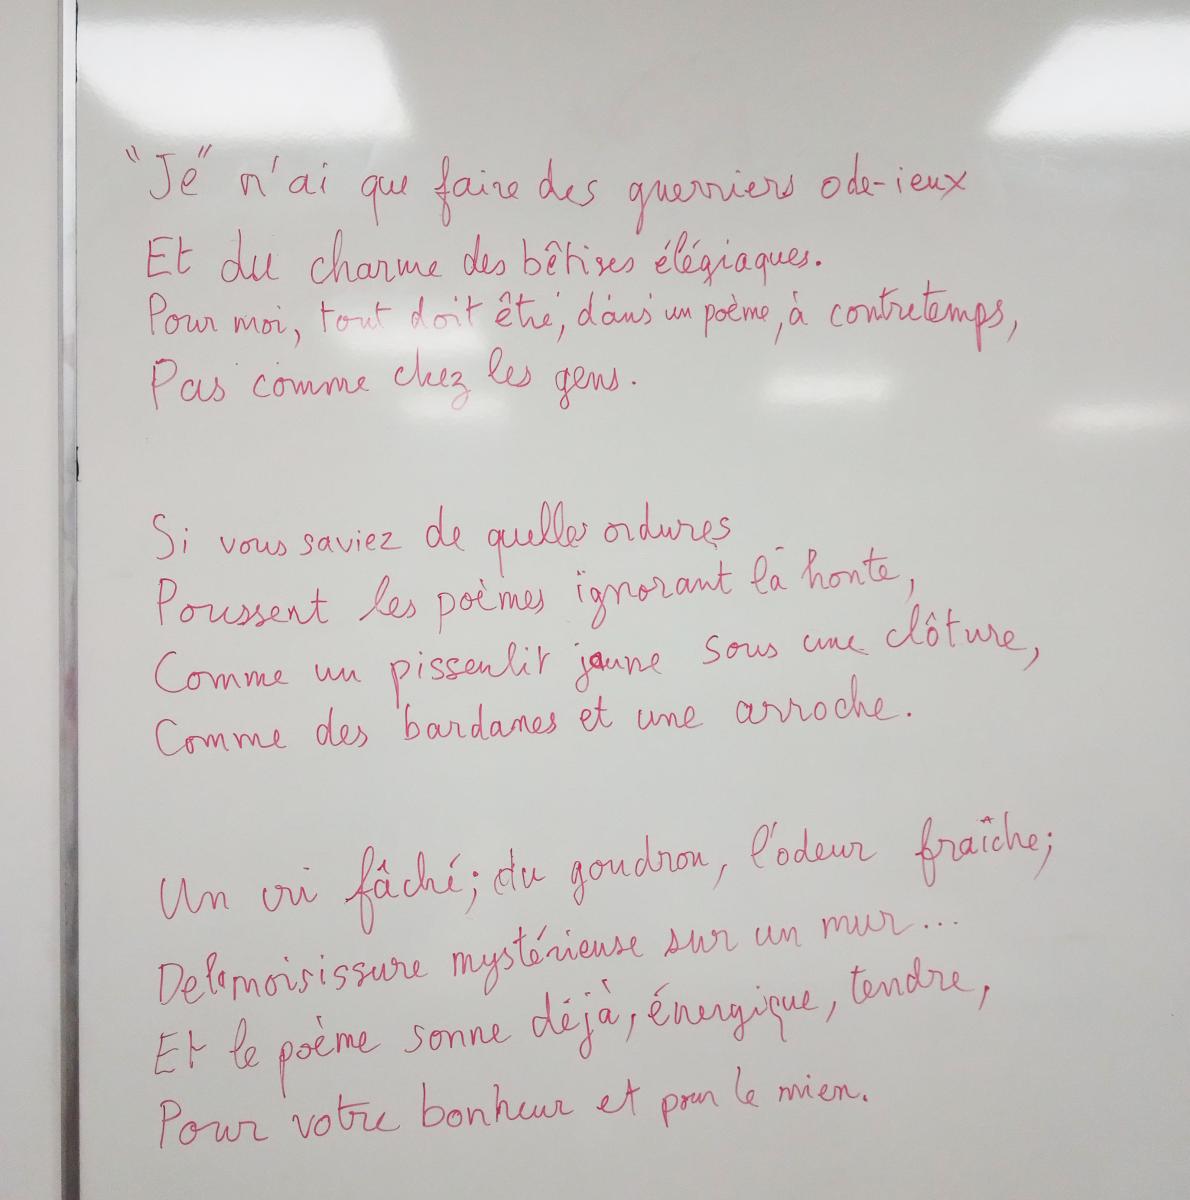 "Je" n'ai que faire des guerriers ode-ieux
Et du charme des bêtises élégiaques.
Pour moi, tout doit être, dans un poème, à contretemps,
Pas comme chez les gens.
Si vous saviez de quelles ordures
Poussent les poèmes ignorant la honte,
Comme un pissenlit jaune sous une clôture,
Comme des bardanes et une arroche.
Un cri fâché; du goudron, l'odeur fraîche;
De la moisissure mystérieuse sur un mur...
Et le poème sonne déjà, énergique, tendre,
Pour votre bonheur et pour le mien.